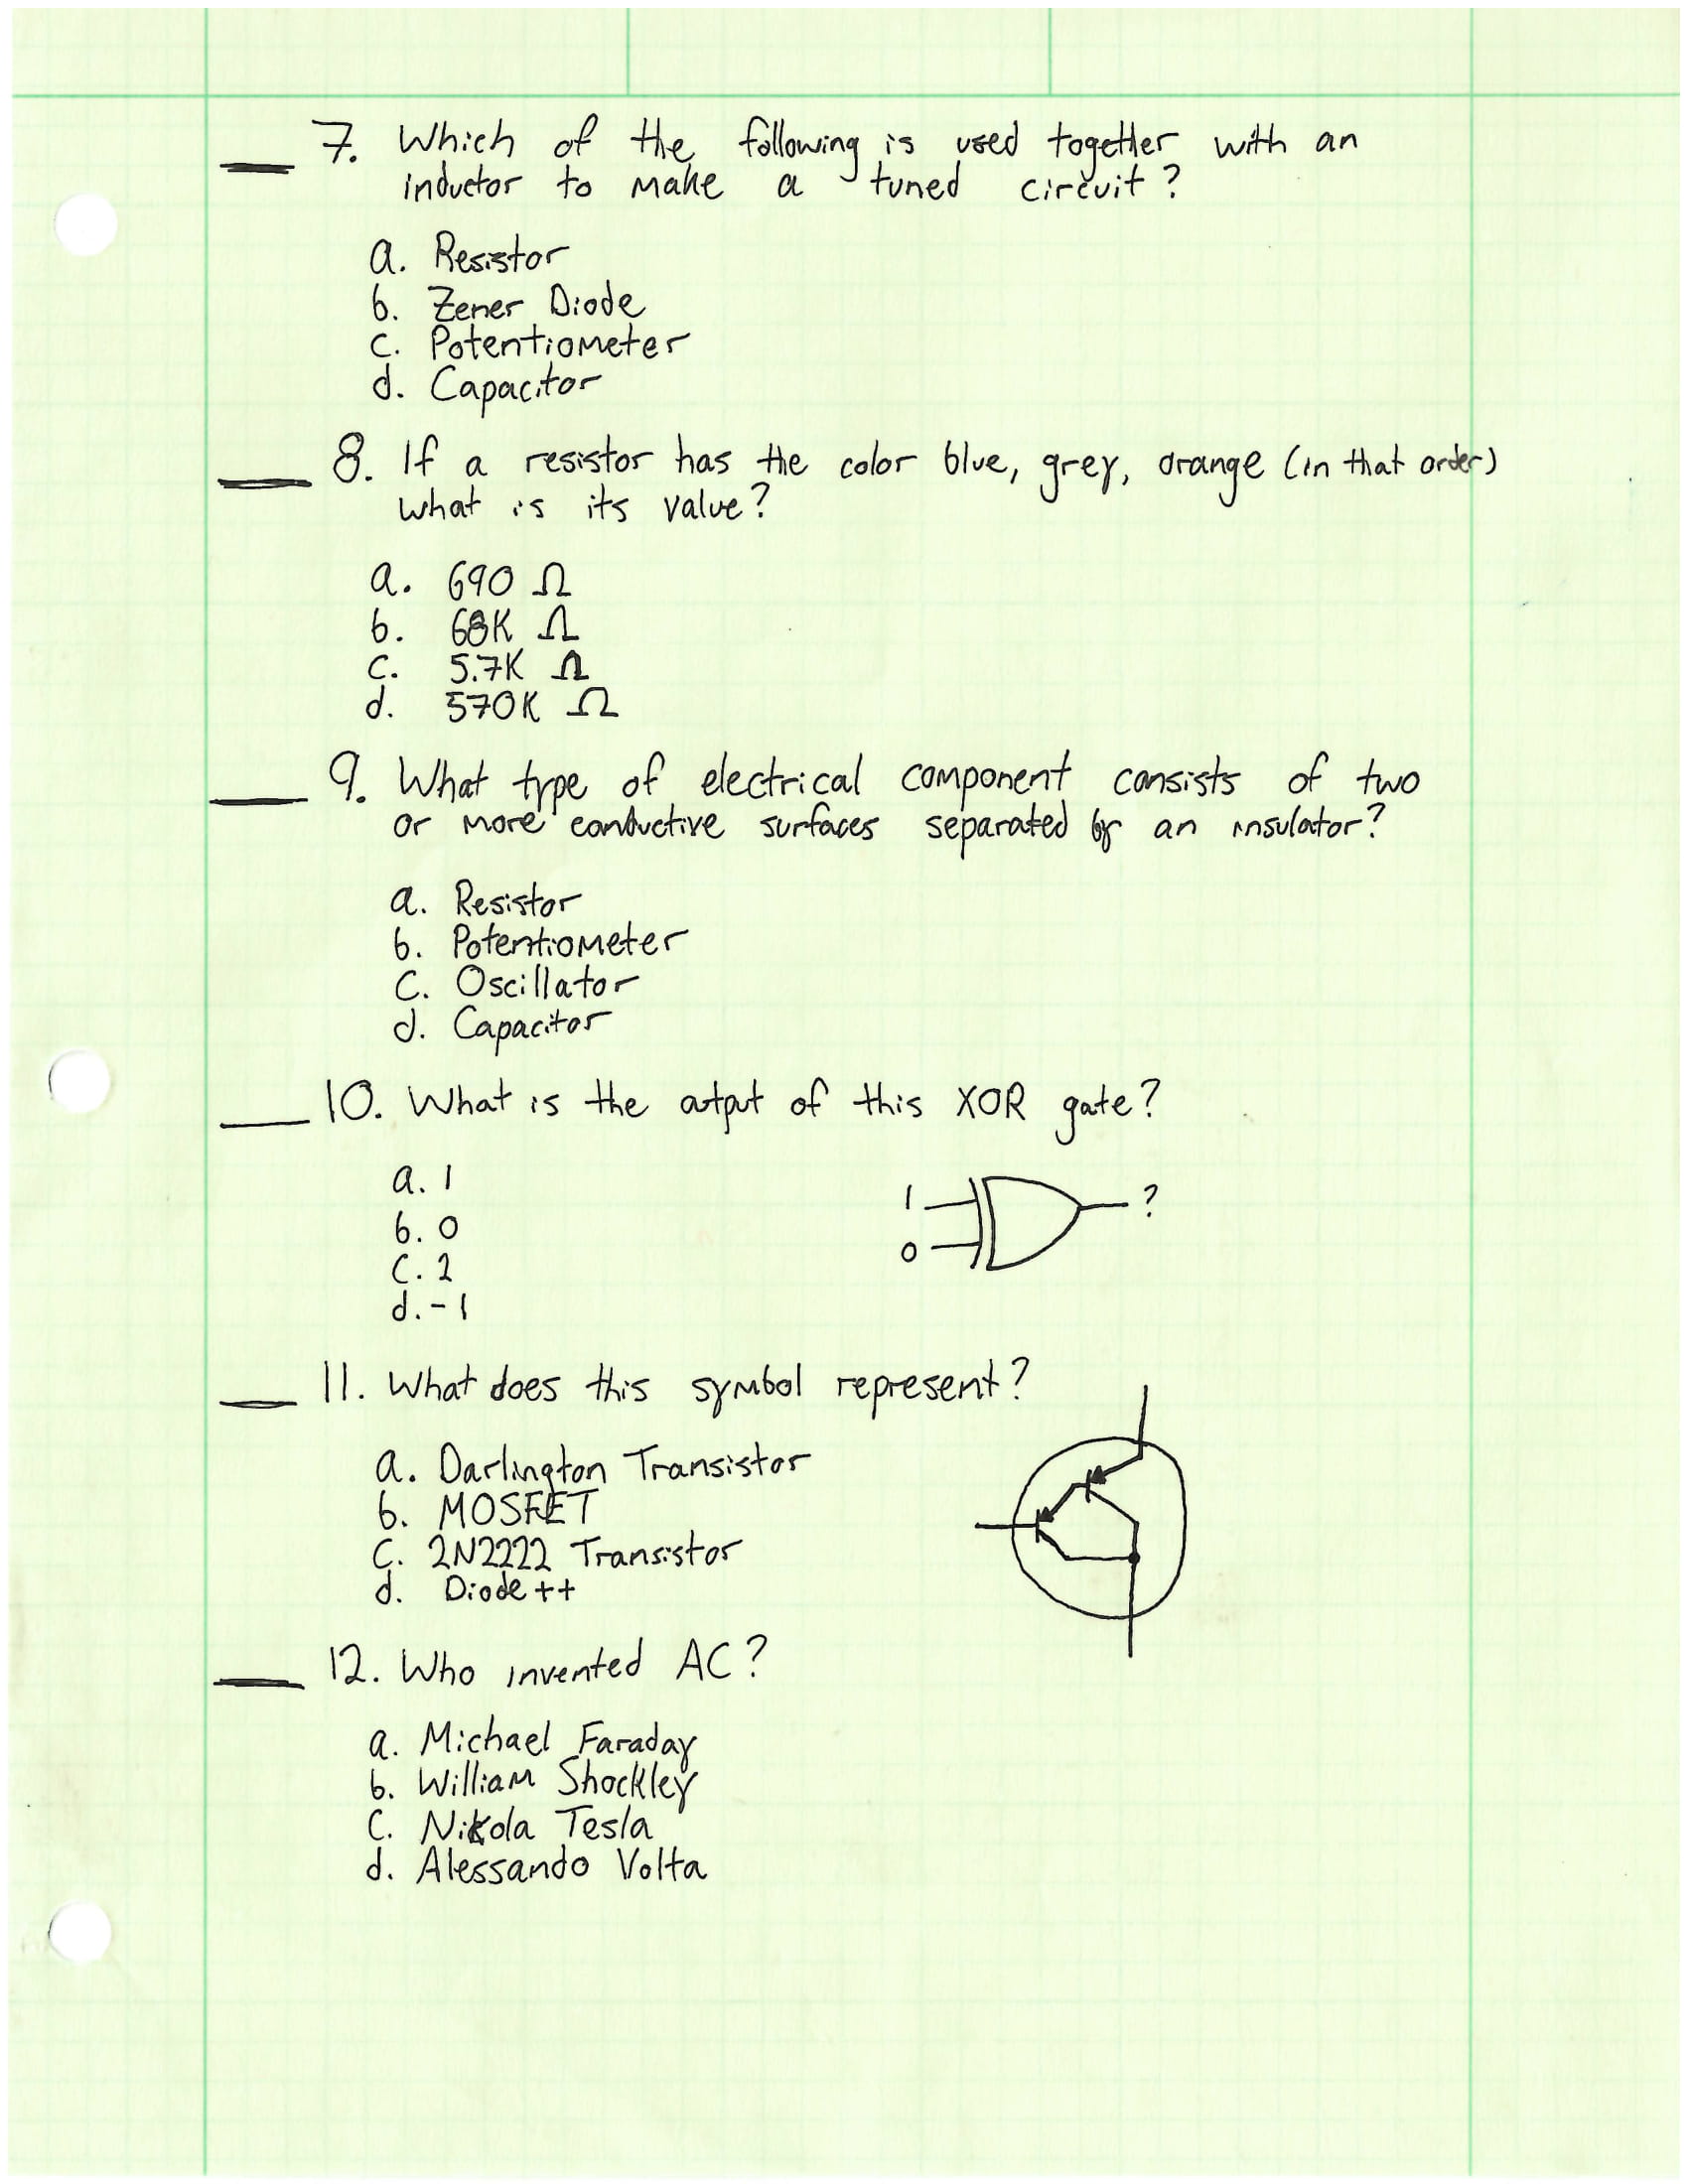 7. Which of the following is used together with an
inductor to make a tuned circuit?
a. Resistor
b. Zener Diode
c. Potentiometer
d. Capacitor
8. If a resistor has the color blue, grey, orange (in that order)
what is its value?
a. 690 Ω
b. 68K Ω
c. 5.7K Ω
d. 570K Ω
9. What type of electrical component consists of two
or more conductive surfaces separated by an insulator?
a. Resistor
b. Potentiometer
c. Oscillator
d. Capacitor
10. What is the output of this XOR gate?
a. 1
b. 0
c. 2
d. -1
1
0
?
11. What does this symbol represent?
a. Darlington Transistor
b. MOSFET
c. 2N2222 Transistor
d. Diode++
12. Who invented AC?
a. Michael Faraday
b. William Shockley
c. Nikola Tesla
d. Alessando Volta